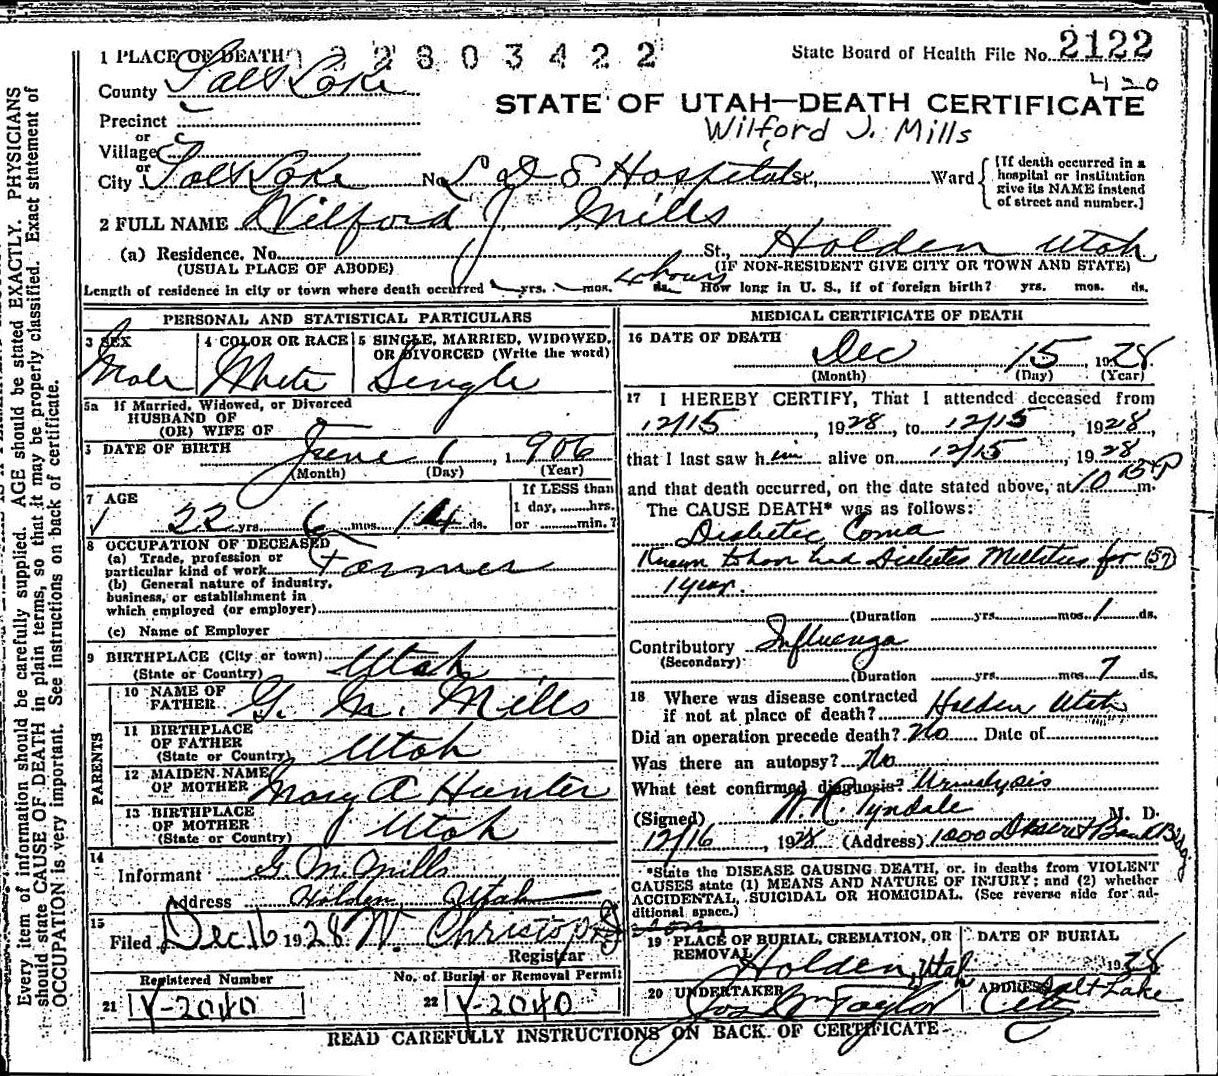 1 PLACE OF DEATH 22803422 State Board of Health File No. 2122
420
County Salt Lake
STATE OF UTAH—DEATH CERTIFICATE
Precinct
Wilford J. Mills
or
Village
or
City Salt Lake No. L D S Hospital St., Ward
[If death occurred in a
hospital or institution
give its NAME instead
of street and number.]
2 FULL NAME Wilford J Mills
(a) Residence. No. St., Holden Utah
(USUAL PLACE OF ABODE) (IF NON-RESIDENT GIVE CITY OR TOWN AND STATE)
Length of residence in city or town where death occurred yrs. mos. 4 hours ds. How long in U. S., if of foreign birth? yrs. mos. ds.
PERSONAL AND STATISTICAL PARTICULARS
3 SEX 4 COLOR OR RACE 5 SINGLE, MARRIED, WIDOWED,
OR DIVORCED (Write the word)
Male White Single
5a If Married, Widowed, or Divorced
HUSBAND OF
(OR) WIFE OF
DATE OF BIRTH June 1, 1906
(Month) (Day) (Year)
7 AGE
If LESS than
1 day, hrs.
or min.?
22 yrs. 6 mos. 14 ds.
8 OCCUPATION OF DECEASED
(a) Trade, profession or
particular kind of work Farmer
(b) General nature of industry,
business, or establishment in
which employed (or employer)
(c) Name of Employer
9 BIRTHPLACE (City or town)
(State or Country) Utah
PARENTS
10 NAME OF
FATHER G. M. Mills
11 BIRTHPLACE
OF FATHER
(State or Country) Utah
12 MAIDEN NAME
OF MOTHER Mary A Hunter
13 BIRTHPLACE
OF MOTHER
(State or Country) Utah
14
Informant G. M. Mills
Address Holden, Utah
15
Filed Dec 16 1928 W. Christopherson
Registrar
Registered Number No. of Burial or Removal Permit
21 Y-2040 22 Y-2040
MEDICAL CERTIFICATE OF DEATH
16 DATE OF DEATH
Dec 15, 1928
(Month) (Day) (Year)
17 I HEREBY CERTIFY, That I attended deceased from
12/15, 1928, to 12/15 1928,
that I last saw him alive on 12/15, 1928
and that death occurred, on the date stated above, at 10 15 P m.
The CAUSE DEATH* was as follows:
Diabetic Coma
Known to have had Diabetes Mellitus for 57
1 year.
(Duration yrs. mos. 1 ds.
Contributory Influenza
(Secondary)
(Duration yrs. mos. 7 ds.
18 Where was disease contracted
if not at place of death? Holden Utah
Did an operation precede death? No Date of
Was there an autopsy? No
What test confirmed diagnosis? Urinalysis
(Signed) W. R. Tyndale M. D.
12/16, 1928 (Address) 1000 Deseret Bank Bldg
*State the DISEASE CAUSING DEATH, or, in deaths from VIOLENT
CAUSES state (1) MEANS AND NATURE OF INJURY; and (2) whether
ACCIDENTAL, SUICIDAL OR HOMICIDAL. (See reverse side for ad-
ditional space.)
19 PLACE OF BURIAL, CREMATION, OR
REMOVAL
Holden, Utah
DATE OF BURIAL
1928
20 UNDERTAKER
Jos Wm Taylor
ADDRESS Salt Lake
City
READ CAREFULLY INSTRUCTIONS ON BACK OF CERTIFICATE
Every item of information should be carefully supplied. AGE should be stated EXACTLY. PHYSICIANS
should state CAUSE OF DEATH in plain terms, so that it may be properly classified. Exact statement of
OCCUPATION is very important. See instructions on back of certificate.